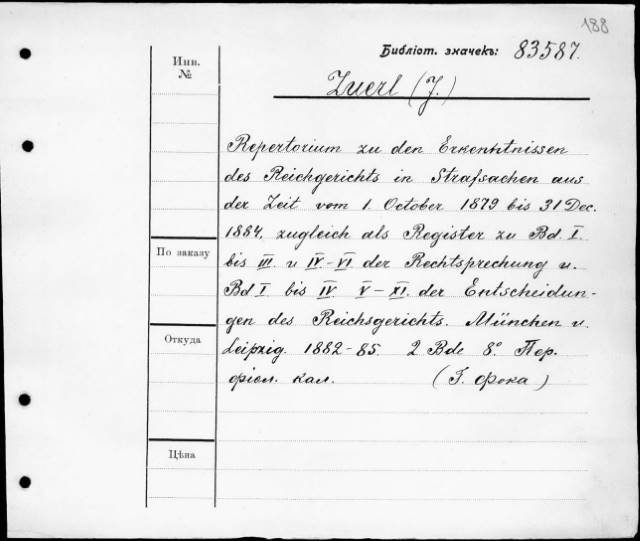 188
Библіот. значекъ: 83587.
Инв.
№
Zuerl (J.)
Repertorium zu den Erkenntnissen
des Reichgerichts in Strafsachen aus
der Zeit vom 1. October 1879 bis 31 Dec.
1884, zugleich als Register zu Bd. I.
bis III. u IV-VI. der Rechtsprechung u.
По заказу
Bd I. bis IV. V-XI. der Entscheidun-
gen des Reichsgerichts. München u.
Откуда
Leipzig. 1882-85. 2 Bde 8º. Пер.
фіол. кал. (Г. Фока)
Цѣна